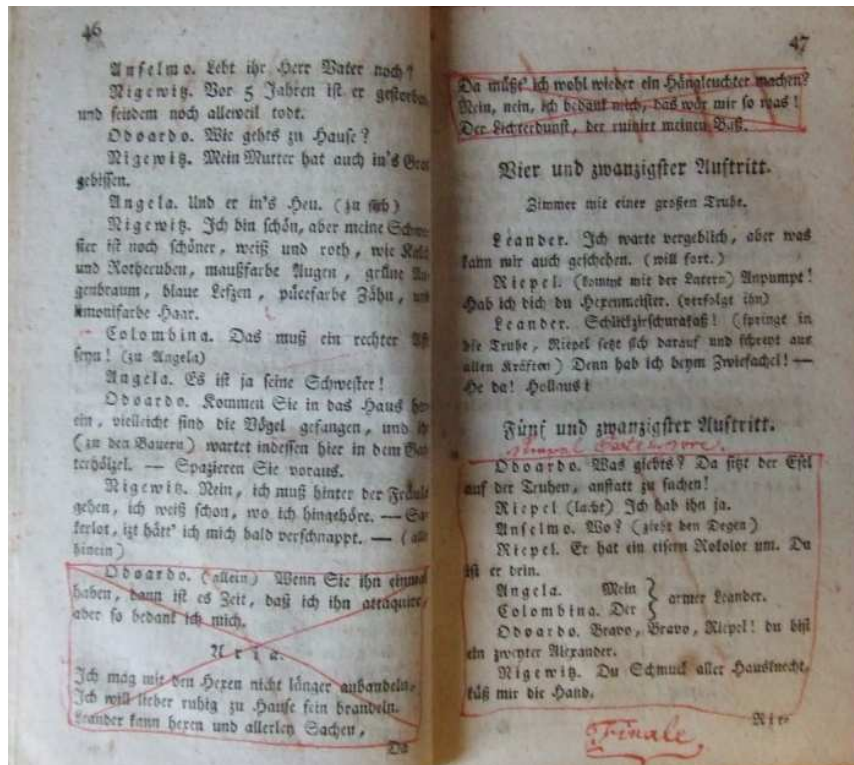 46
Anselmo. Lebt ihr Herr Vater noch?
Nigewitz. Vor 5 Jahren ist er gestorben,
und seitdem noch alleweil todt.
Odoardo. Wie gehts zu Hause?
Nigewitz. Mein Mutter hat auch in's Gras
gebissen.
Angela. Und er in's Heu. (zu sich)
Nigewitz. Ich bin schön, aber meine Schwe-
ster ist noch schöner, weiß und roth, wie Kalch
und Rotheruben, maußfarbe Augen, grüne Au-
genbraum, blaue Lefzen, pücefarbe Zähn, und
limonifarbe Haar.
Colombina. Das muß ein rechter Aff
seyn! (zu Angela)
Angela. Es ist ja seine Schwester!
Odoardo. Kommen Sie in das Haus her-
ein, vielleicht sind die Vögel gefangen, und ihr
(zu den Bauern) wartet indessen hier in dem Gat-
terhölzel. — Spazieren Sie voraus.
Nigewitz. Nein, ich muß hinter der Fräule
gehen, ich weiß schon, wo ich hingehöre. — Sa-
kerlot, izt hätt' ich mich bald verschnappt. — (alle
hinein)
Odoardo. (allein) Wenn Sie ihn einmal
haben, dann ist es Zeit, daß ich ihn attaquire,
aber so bedank ich mich.
Aria.
Ich mag mit den Hexen nicht länger anbandeln,
Ich will lieber ruhig zu Hause fein brandeln.
Leander kann hexen und allerley Sachen,
Da
47
Da müßt' ich wohl wieder ein Hängleuchter machen?
Nein, nein, ich bedank mich, das wär mir so was!
Der Lichterdunst, der ruinirt meinen Baß.
Vier und zwanzigster Auftritt.
Zimmer mit einer großen Truhe.
Leander. Ich warte vergeblich, aber was
kann mir auch geschehen. (will fort.)
Riepel. (kommt mit der Latern) Anpumpt!
Hab ich dich du Hexenmeister. (verfolgt ihn)
Leander. (springt in
die Truhe, Riepel setzt sich darauf und schreyt aus
allen Kräften) Denn hab ich beym Zwiefachel! —
He da! Hollaus!
Fünf und zwanzigster Auftritt.
Odoardo. Was giebts? Da sitzt der Esel
auf der Truhen, anstatt zu suchen!
Riepel (lacht) Ich hab ihn ja.
Anselmo. Wo? (zieht den Degen)
Riepel. Er hat ein eisern Rokolor um. Da
ist er drin.
Angela. Mein } armer Leander.
Colombina. Der
Odoardo. Bravo, Bravo, Riepel! du bist
ein zweyter Alexander.
Nigewitz. Du Schmuck aller Hausknecht,
küß mir die Hand.
Finale